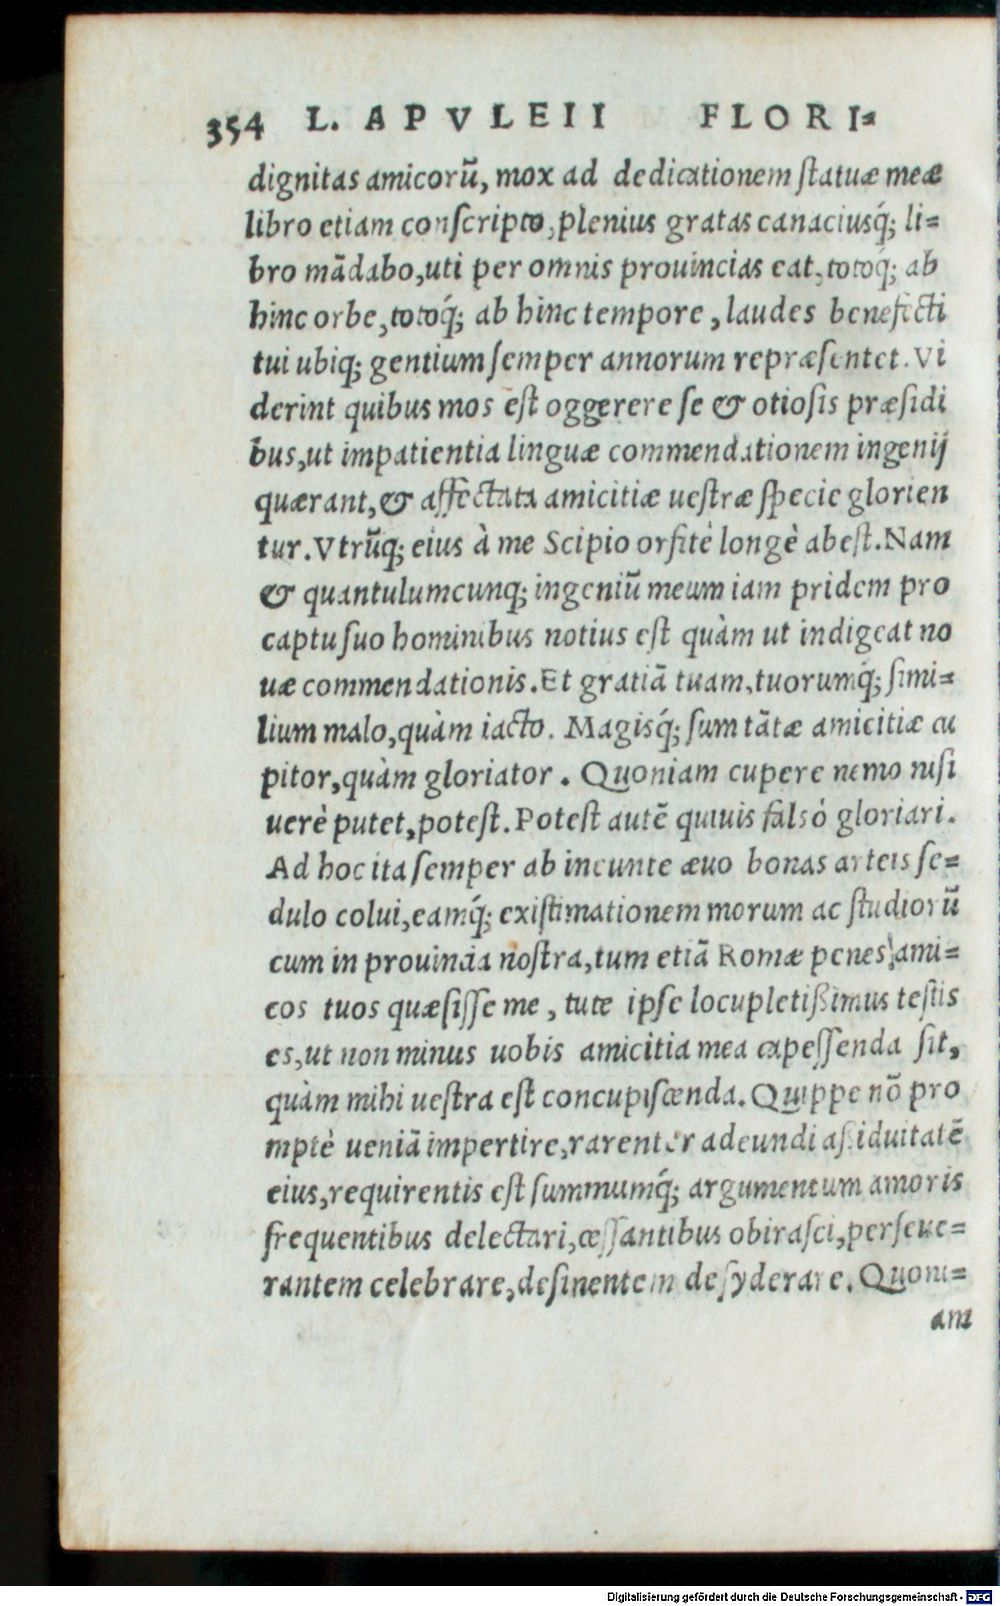 354 L. APVLEII FLORI-
dignitas amicorũ, mox ad dedicationem ſtatuæ meæ
libro etiam conſcripto, plenius gratas canaciusq́; li-
bro mãdabo, uti per omnis prouincias eat, totoq́; ab
hinc orbe, totoq́; ab hinc tempore, laudes benefacti
tui ubiq; gentium ſemper annorum repræſentet. Vi
derint quibus mos eſt oggerere ſe & otioſis præſidi
bus, ut impatientia linguæ commendationem ingenij
quærant, & affectata amicitiæ ueſtræ ſpecie glorien
tur. Vtrũq; eius à me Scipio orfitè longè abeſt. Nam
& quantulumcunq; ingeniũ meum iam pridem pro
captu ſuo hominibus notius eſt quàm ut indigeat no
uæ commendationis. Et gratiã tuam, tuorumq́; ſimi-
lium malo, quàm iacto. Magisq́; ſum tãtæ amicitiæ cu
pitor, quàm gloriator. Quoniam cupere nemo niſi
uerè putet, poteſt. Poteſt autẽ quiuis falsò gloriari.
Ad hoc ita ſemper ab incunte æuo bonas arteis ſe-
dulo colui, eamq́; exiſtimationem morum ac ſtudiorũ
cum in prouincia noſtra, tum etiã Romæ penes ami-
cos tuos quæſiſſe me, tute ipſe locupletißimus teſtis
es, ut non minus uobis amicitia mea capeſſenda ſit,
quàm mihi ueſtra eſt concupiſcenda. Quippe nõ pro
mptè ueniã impertire, rarenter adeundi aßiduitatẽ
eius, requirentis eſt ſummumq́; argumentum amoris
frequentibus delectari, ceſſantibus obiraſci, perſeue-
rantem celebrare, deſinentem deſyderare. Quoni-
am
Digitalisierung gefördert durch die Deutsche Forschungsgemeinschaft - DFG